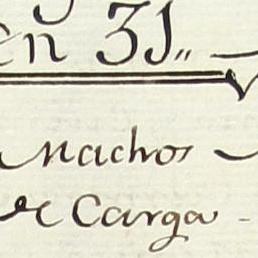 en 31,,
Machos
de Carga